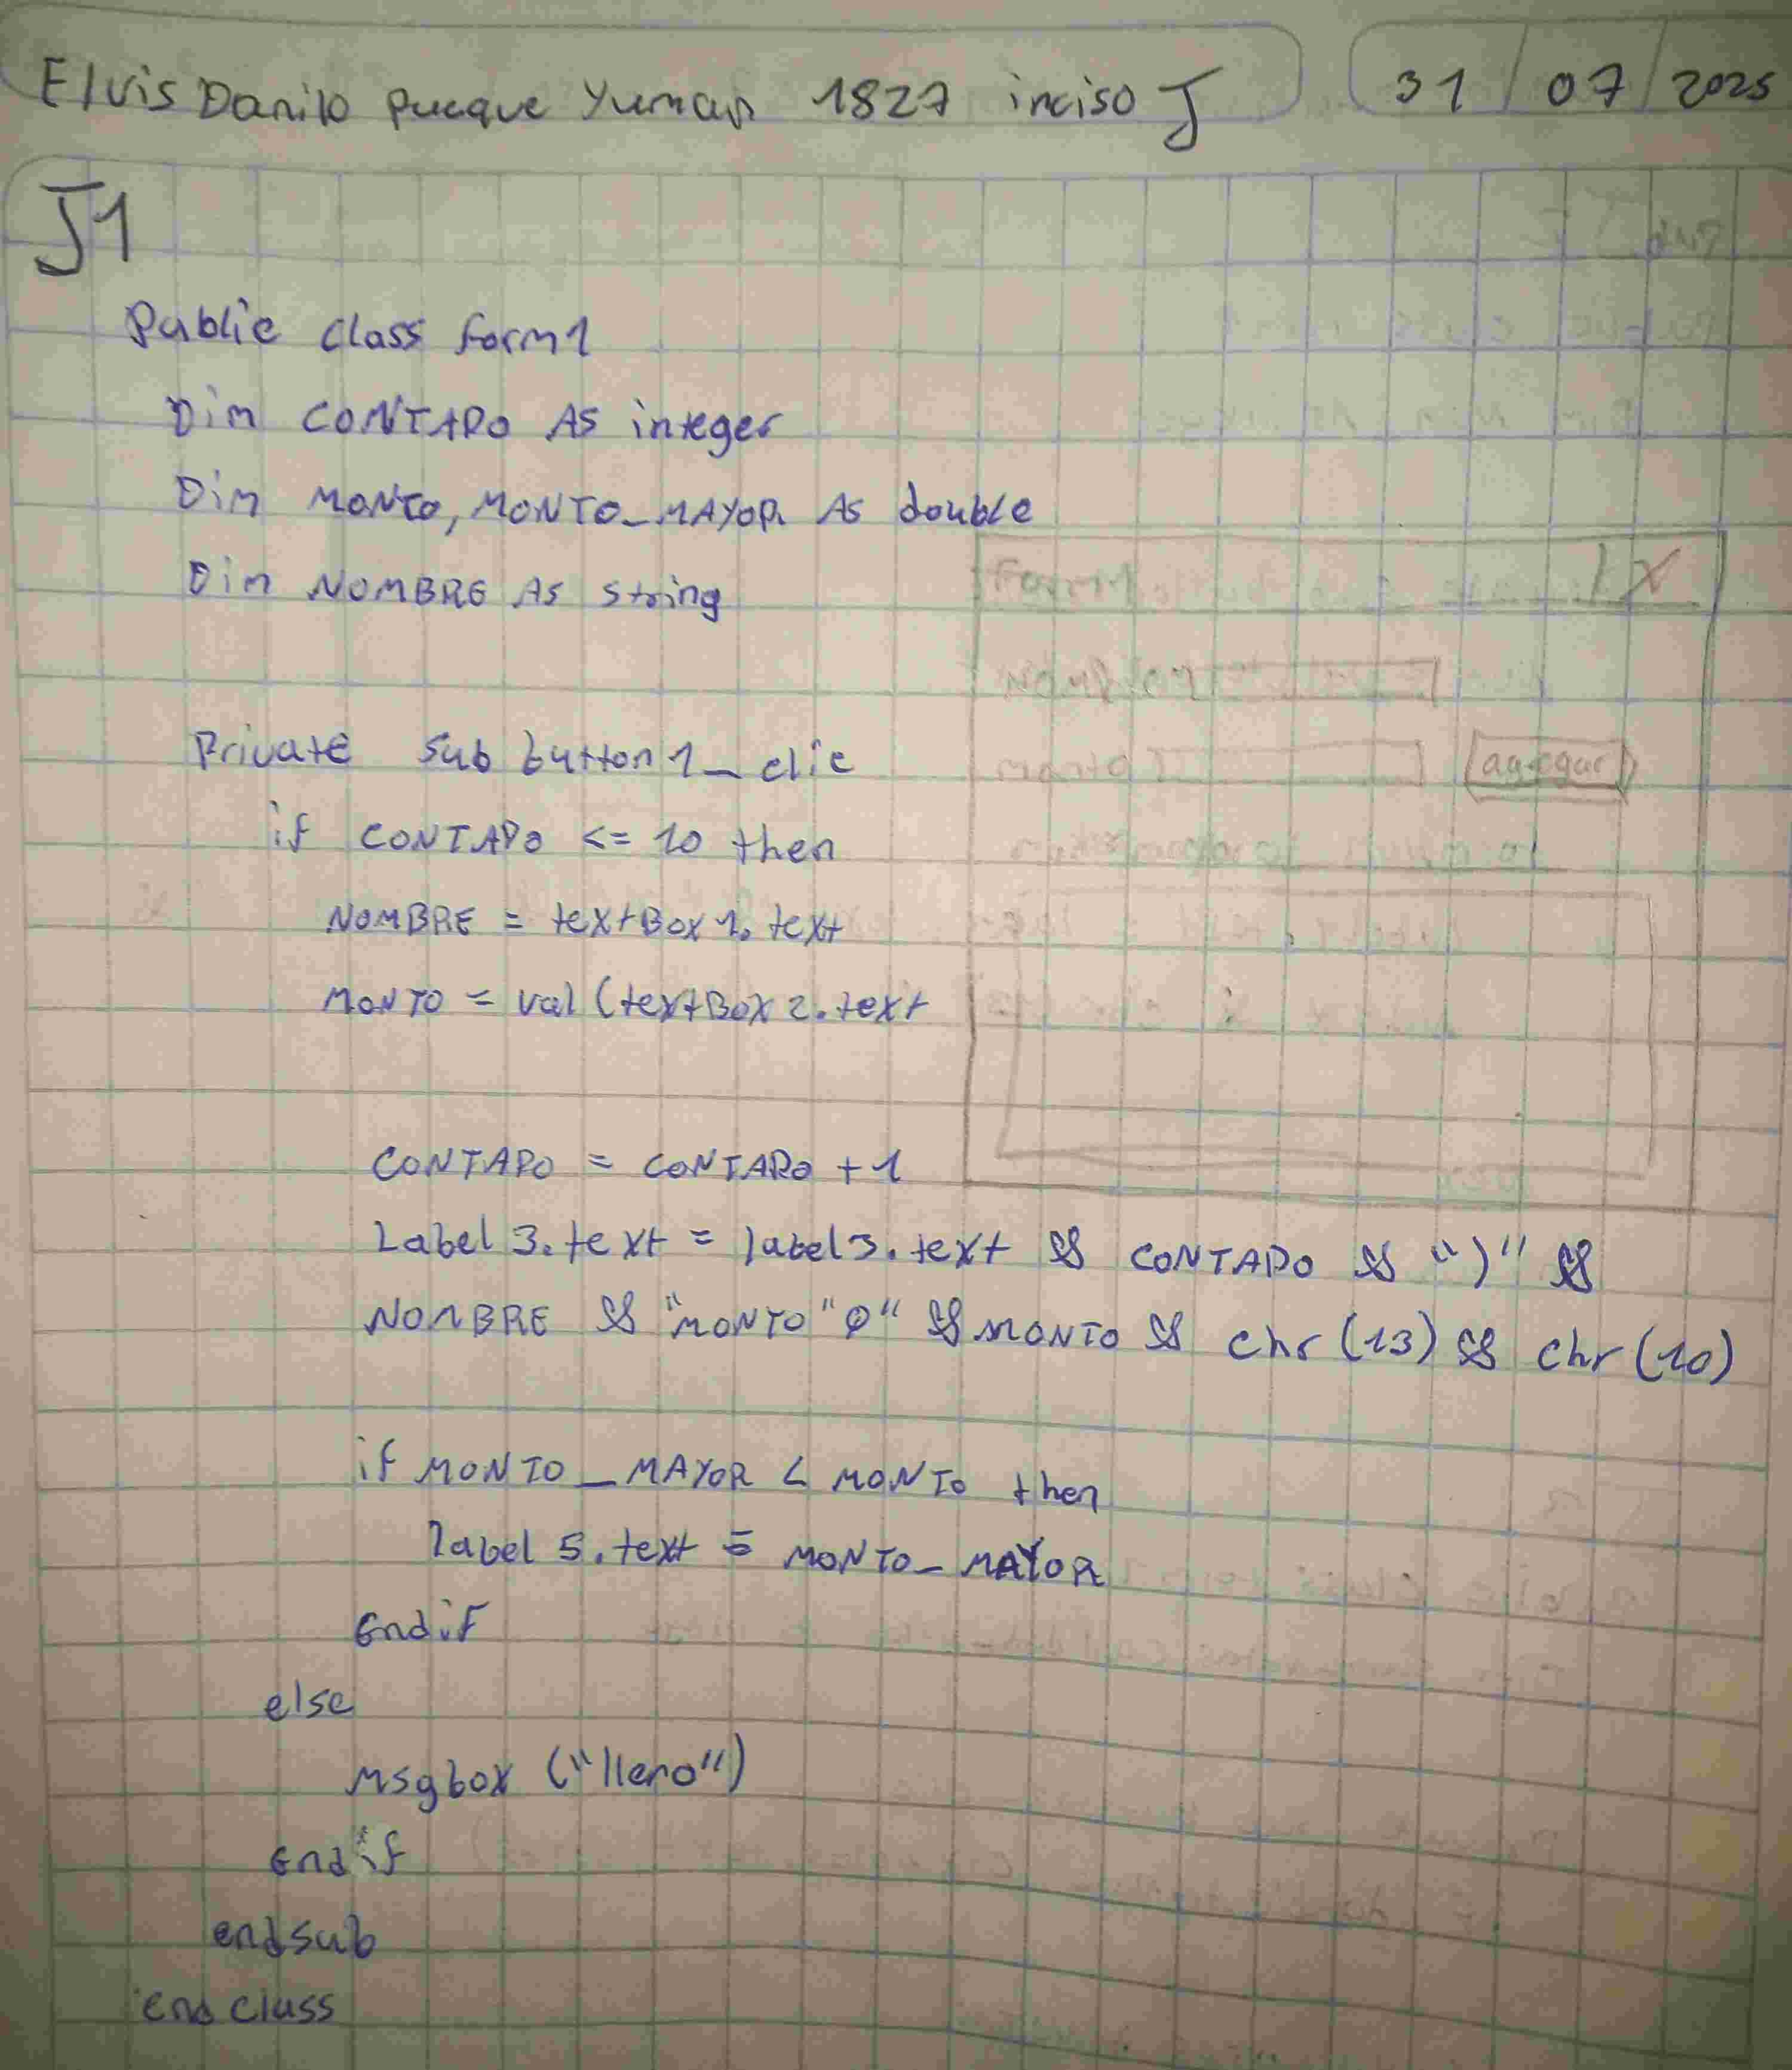 Elvis Danilo pucque Yuman 1827 inciso J
31 / 07 / 2025
J1
Public class form1
Dim CONTADO AS integer
Dim MONTO, MONTO_MAYOR AS double
Dim NOMBRE AS string
Form1 X
monto
agregar
Private sub button1_clic
if CONTADO <= 10 then
NOMBRE = textBox1.text
MONTO = val(textBox2.text
CONTADO = CONTADO + 1
Label3.text = label3.text & CONTADO & ")" &
NOMBRE & "MONTO "Q" & MONTO & chr(13) & chr(10)
if MONTO_MAYOR < MONTO then
label5.text = MONTO_MAYOR
Endif
else
Msgbox ("lleno")
Endif
endsub
end class